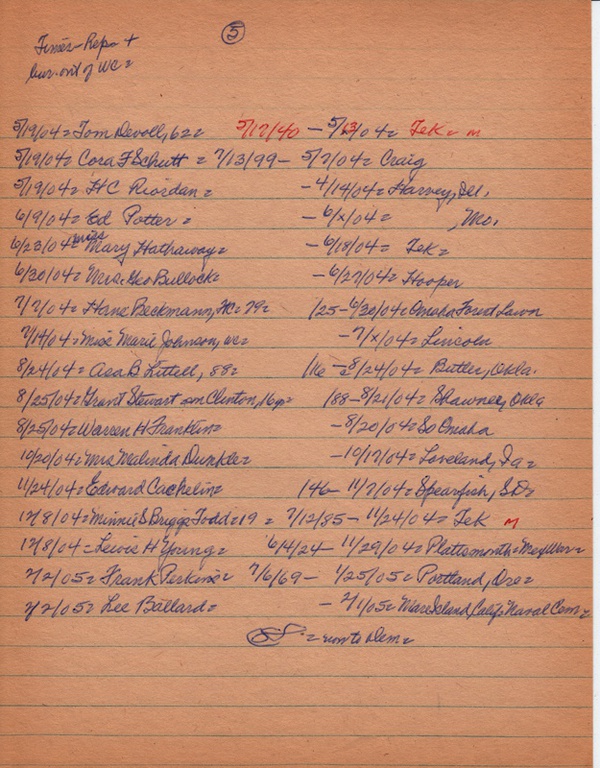 5
Times-Repo +
bur. out of WC =
5/19/04 = Tom Devoll, 62 = 5/17/40 – 5/13/04 = Tek = m
5/19/04 = Cora F Schutt = 7/13/99 – 5/7/04 = Craig
5/19/04 = HC Riordan = – 4/14/04 = Harvey, Ill.
6/9/04 = Ed Potter = – 6/x/04 = , Mo.
6/23/04 = Miss Mary Hathaway = – 6/18/04 = Tek =
6/30/04 = Mrs. Geo Bullock = – 6/27/04 = Hooper
7/7/04 = Hans Beckmann, = 79 = /25 – 6/30/04 = Omaha Forest Lawn
7/14/04 = Miss Marie Johnson, wc = – 7/x/04 = Lincoln
8/24/04 = Asa B Littell, 88 = /16 – 8/24/04 = Butler, Okla.
8/25/04 = Grant Stewart son Clinton, 16 = /88 – 8/21/04 = Shawnee, Okla
8/25/04 = Warren H Franklin = – 8/20/04 = So Omaha
10/20/04 = Mrs Malinda Dunkle = – 10/17/04 = Loveland, Ia =
11/24/04 = Edward Cachelin = /46 – 11/7/04 = Spearfish, SD =
12/8/04 = Minnie S Briggs Todd = 19 = 7/12/85 – 11/24/04 = Tek m
12/8/04 = Lewis H Young = 6/4/24 – 11/29/04 = Plattsmouth = Mex War =
2/2/05 = Frank Perkins = 7/6/69 – 1/25/05 = Portland, Ore =
2/2/05 = Lee Ballard = – 2/1/05 = Mare Island, Calif = Naval Cem =
= now to Dem =